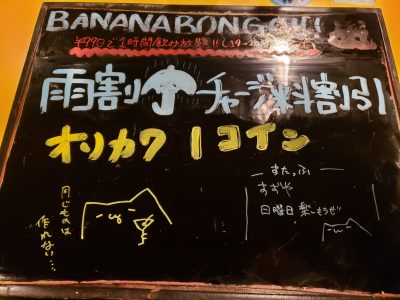 BANANABONGO!!
¥990で1時間飲み放題!!
雨割 チャージ料割引
オリカク 1コイン
すたっふ
すずや
日曜日 楽しもうぜ!!
同じものは
作れない…